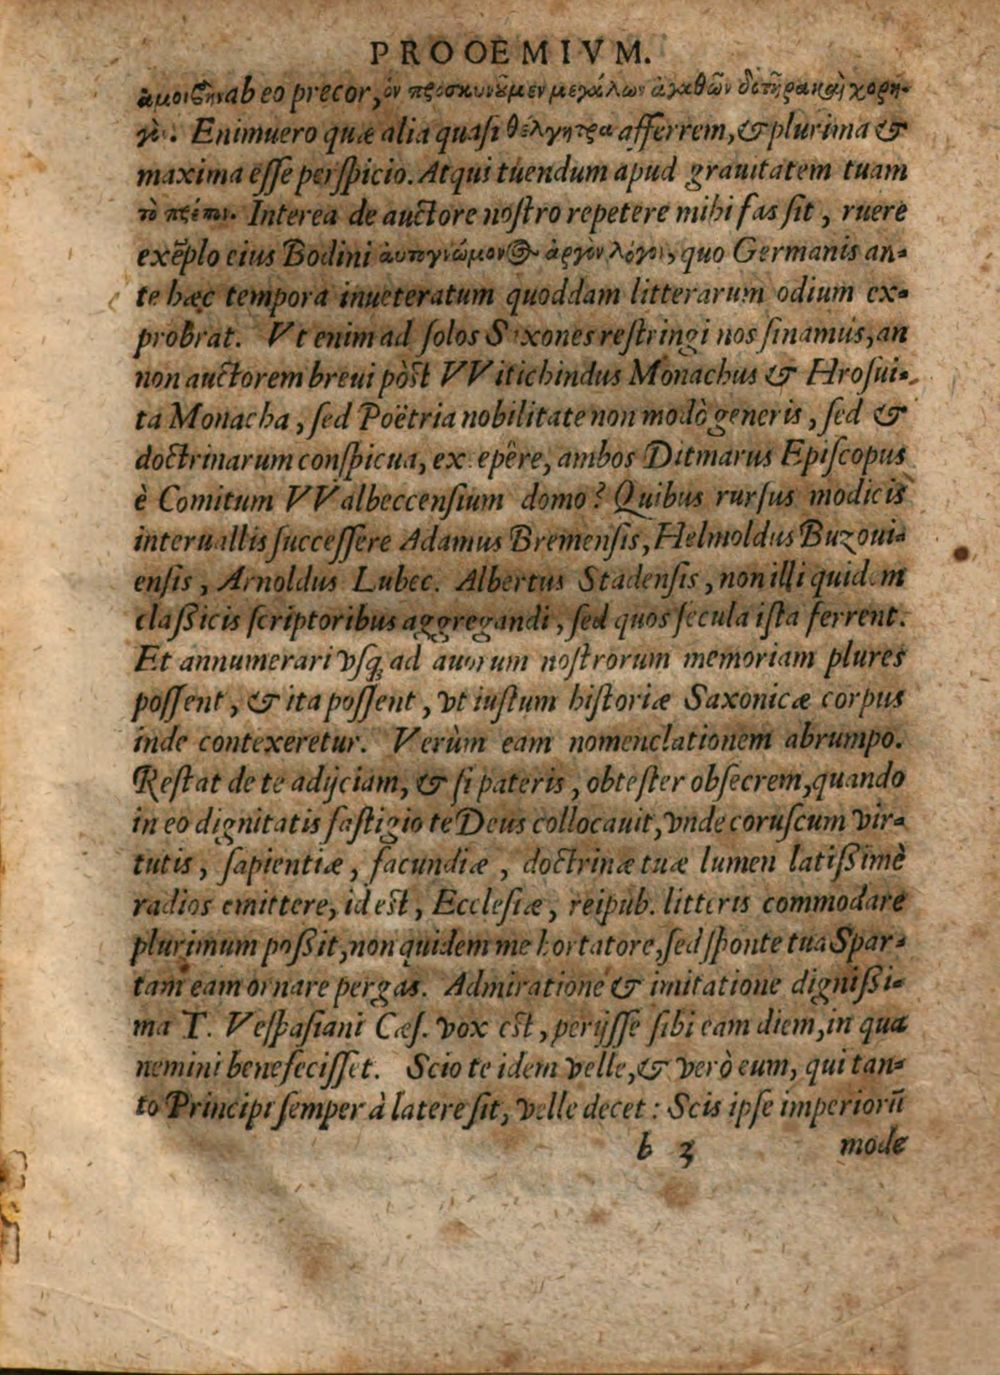 PROOEMIVM.
ἀμοιβὴν ab eo precor, ὃν προσκυνοῦμεν μεγάλων ἀγαθῶν δοτῆρα καὶ χορη-
γόν. Enimuero quæ alia quasi θέλγητρα afferrem, & plurima &
maxima esse perspicio. Atqui tuendum apud grauitatem tuam
τὸ πρέπον. Interea de auctore nostro repetere mihi fas sit, ruere
exẽplo eius Bodini λόγον, quo Germanis an-
te hæc tempora inueteratum quoddam litterarum odium ex-
probrat. Vt enim ad solos Saxones restringi nos sinamus, an
non auctorem breui pòst VVitichindus Monachus & Hrosui-
ta Monacha, sed Poëtria nobilitate non modò generis, sed &
doctrinarum conspicua, excepêre, ambos Ditmarus Episcopus
è Comitum VValbeccensium domo? Quibus rursus modicis
interuallis successere Adamus Bremensis, Helmoldus Buzoui-
ensis, Arnoldus Lubec. Albertus Stadensis, non illi quidem
classicis scriptoribus aggregandi, sed quos secula ista ferrent.
Et annumerari vsq; ad auorum nostrorum memoriam plures
possent, & ita possent, vt iustum historiæ Saxonicæ corpus
inde contexeretur. Verùm eam nomenclationem abrumpo.
Restat de te adijciam, & si pateris, obtester obsecrem, quando
in eo dignitatis fastigio te Deus collocauit, vnde coruscum vir-
tutis, sapientiæ, facundiæ, doctrinæ tuæ lumen latissimè
radios emittere, id est, Ecclesiæ, reipub. litteris commodare
plurimum possit, non quidem me hortatore, sed sponte tua Spar-
tam eam ornare pergas. Admiratione & imitatione dignissi-
ma T. Vespasiani Cæs. vox est, perijsse sibi eam diem, in qua
nemini benefecisset. Scio te idem velle, & verò eum, qui tan-
to Principi semper à latere sit, velle decet: Scis ipse imperiorũ
b 3 mode